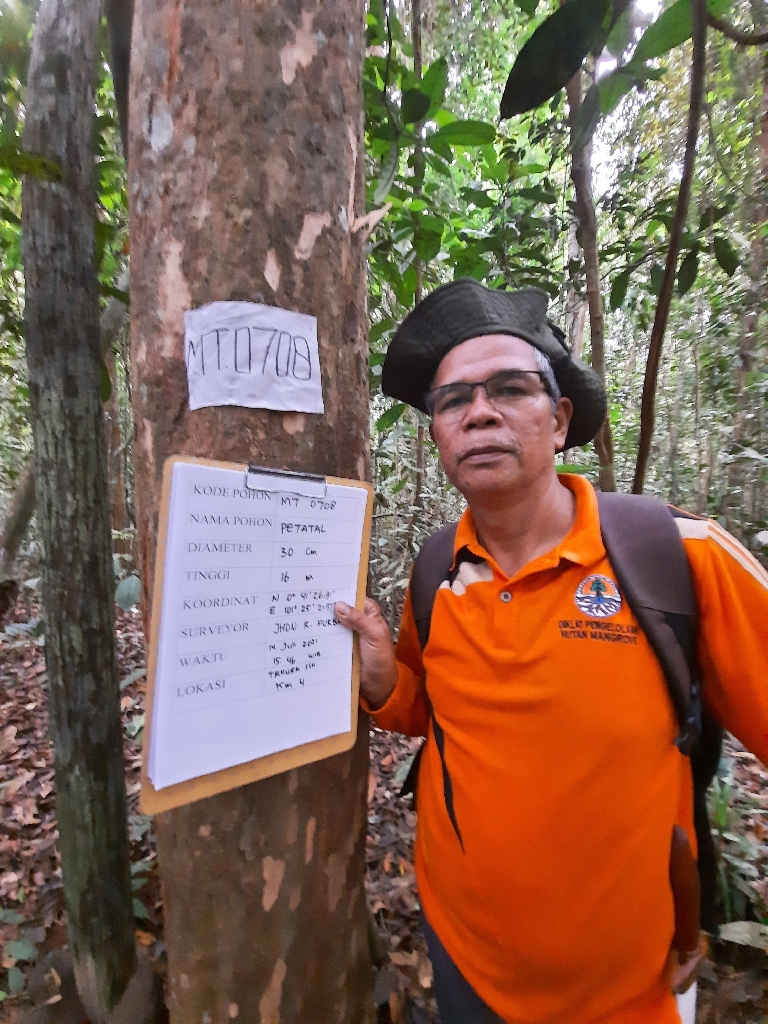 MT.0708
KODE POHON MT 0708
NAMA POHON PETATAL
DIAMETER 30 Cm
TINGGI 16 m
KOORDINAT N 0° 41' 26.91"
E 101° 25'
SURVEYOR JHON K. PURBA
WAKTU Juli 2021
15.46 WIB
LOKASI TAHURA SSH
Km 4
DIKLAT PENGELOLAAN
HUTAN MANGROVE